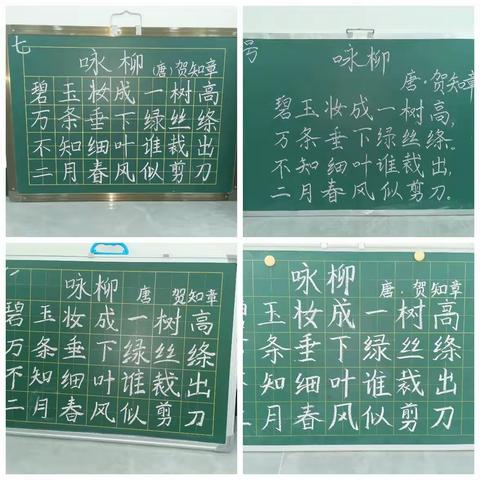 七
咏柳
(唐)贺知章
碧玉妆成一树高
万条垂下绿丝绦
不知细叶谁裁出
二月春风似剪刀
号
咏柳
唐·贺知章
碧玉妆成一树高,
万条垂下绿丝绦。
不知细叶谁裁出,
二月春风似剪刀。
咏柳
唐 贺知章
碧玉妆成一树高
万条垂下绿丝绦
不知细叶谁裁出
二月春风似剪刀
咏柳
唐·贺知章
玉妆成一树高
条垂下绿丝绦
知细叶谁裁出
月春风似剪刀